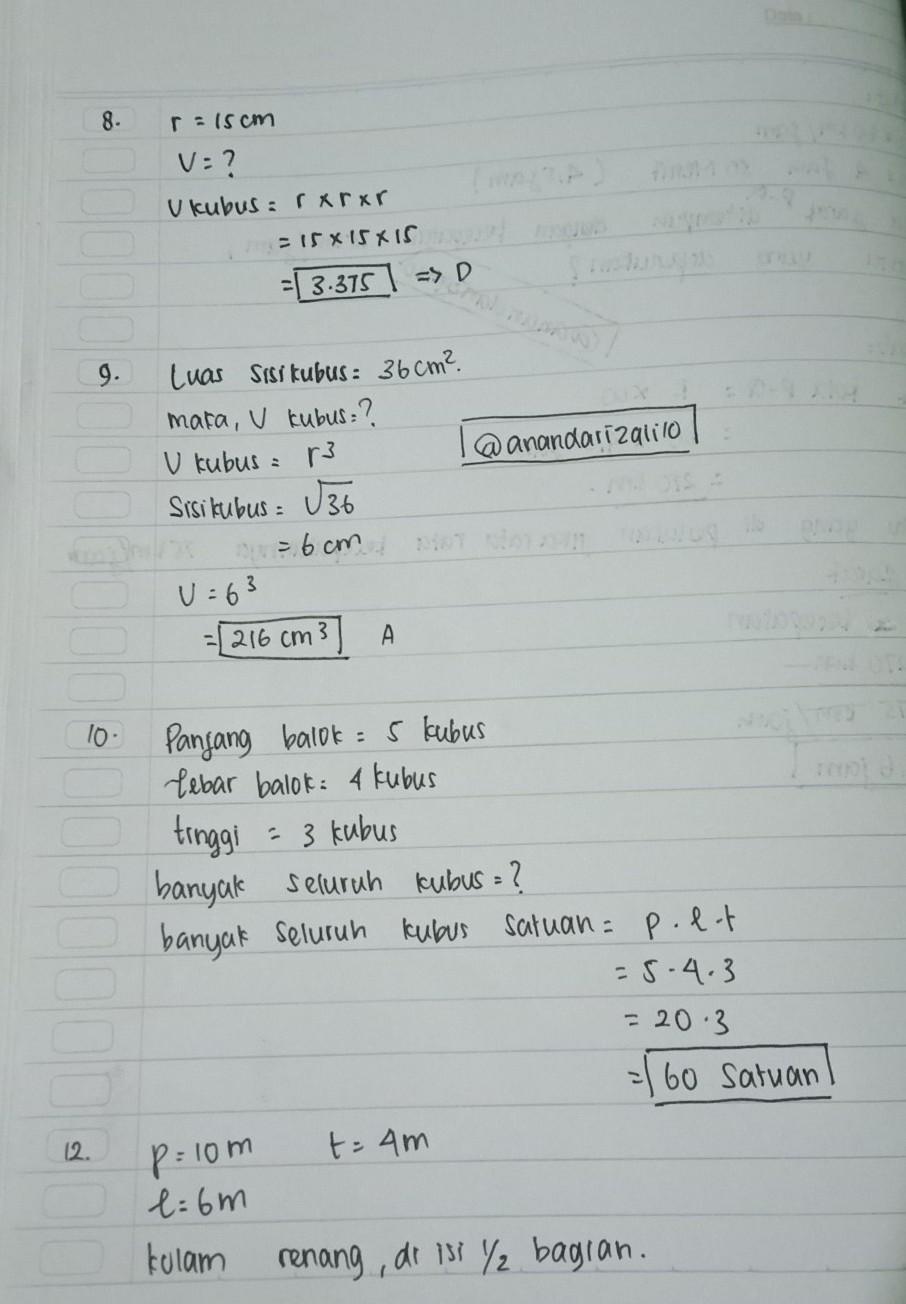 Date
8. r = 15 cm
V = ?
V kubus = r x r x r
= 15 x 15 x 15
= 3.375 => D
9. Luas sisi kubus = 36 cm².
maka, V kubus = ?
V kubus = r³
@anandarizali10
Sisi kubus = √36
= 6 cm
V = 6³
= 216 cm³ A
10. Panjang balok = 5 kubus
lebar balok = 4 kubus
tinggi = 3 kubus
banyak seluruh kubus = ?
banyak seluruh kubus satuan = p . l . t
= 5 . 4 . 3
= 20 . 3
= 60 satuan
12. p = 10 m t = 4 m
l = 6 m
kolam renang, di isi 1/2 bagian.